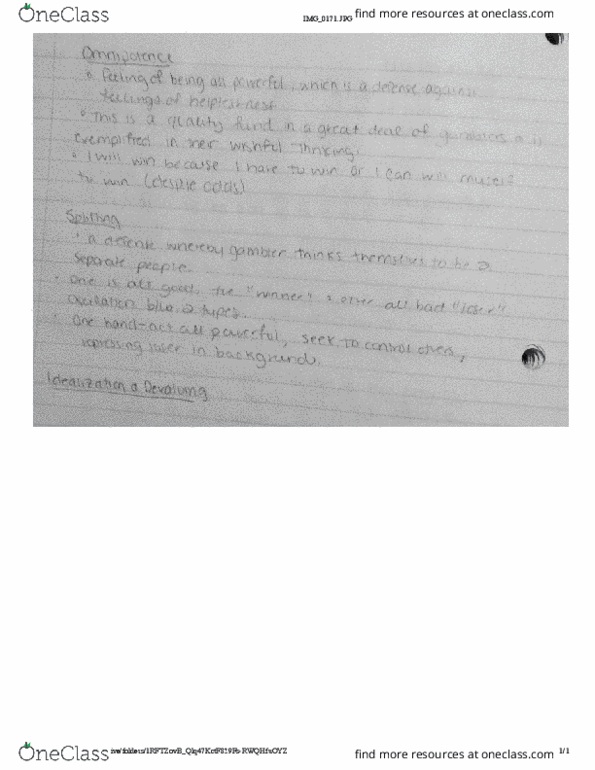 OneClass
IMG_0171.JPG
find more resources at oneclass.com
Omnipotence
Feeling of being all powerful, which is a defense against
feelings of helplessness
This is a quality find in a great deal of gamblers & is
exemplified in their wishful thinking.
I will win because I have to win or I can will
to win (despite odds)
Splitting
a defense whereby gambler thinks themselves to be 2
separate people.
one is all good, the "winner" & other all bad "loser"
oscillation b/w 2 types.
one hand-act all powerful, seek to control others,
loser in background.
Idealization & Devaluing
OneClass
find more resources at oneclass.com
1/1